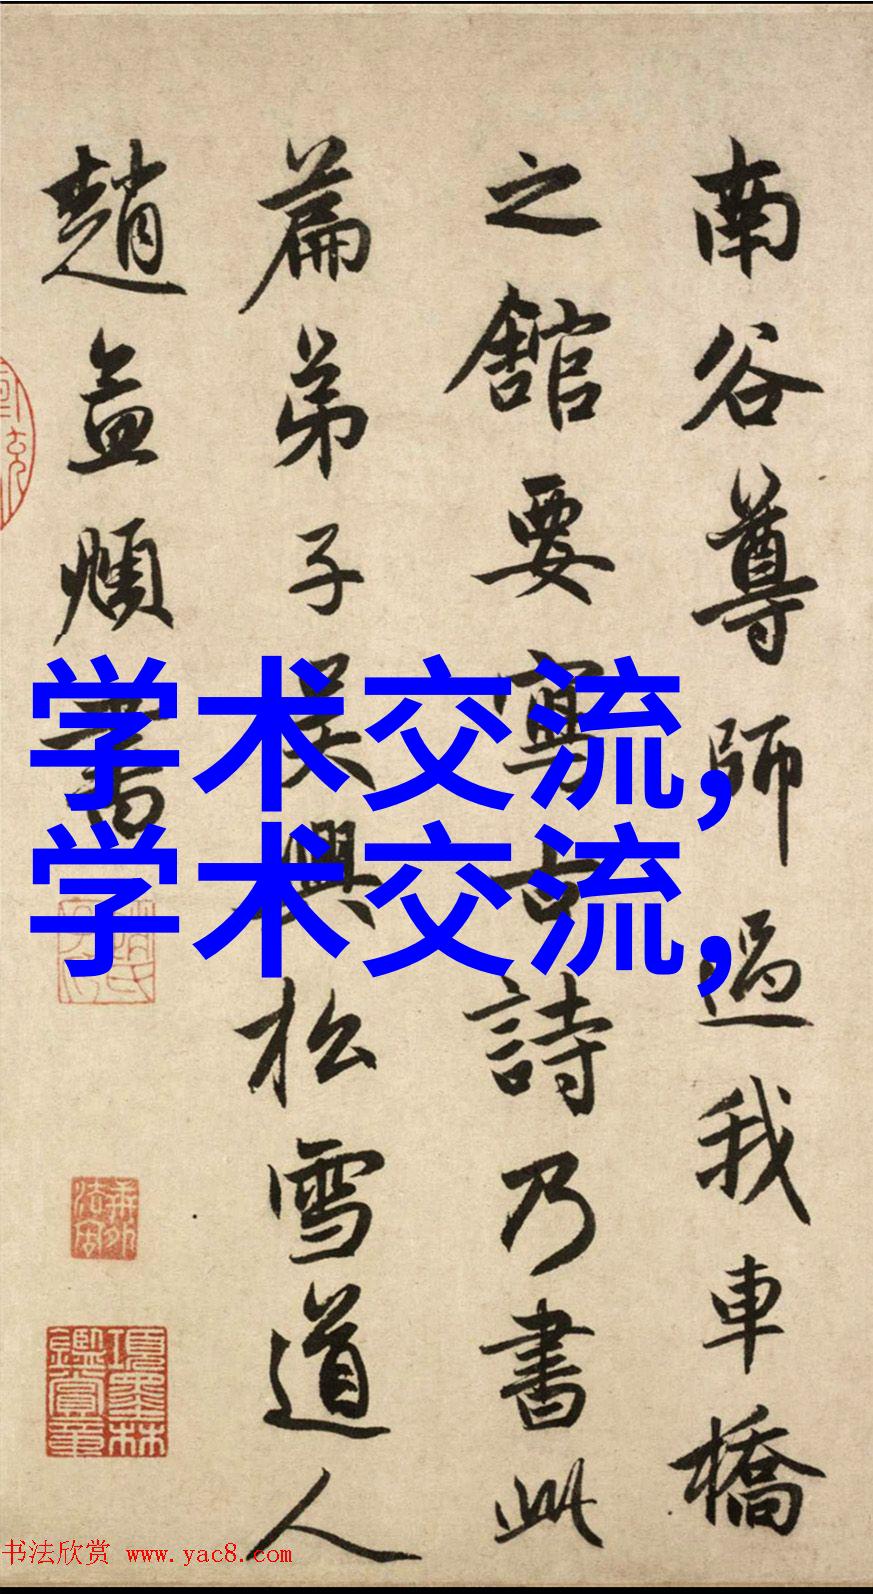 南谷尊師過我車橋
之館要寫古詩乃書此
篇弟子吳興松雪道人
趙孟頫書
学术交流,
学术交流,
項墨林鑑賞章
书法欣赏 www.yac8.com